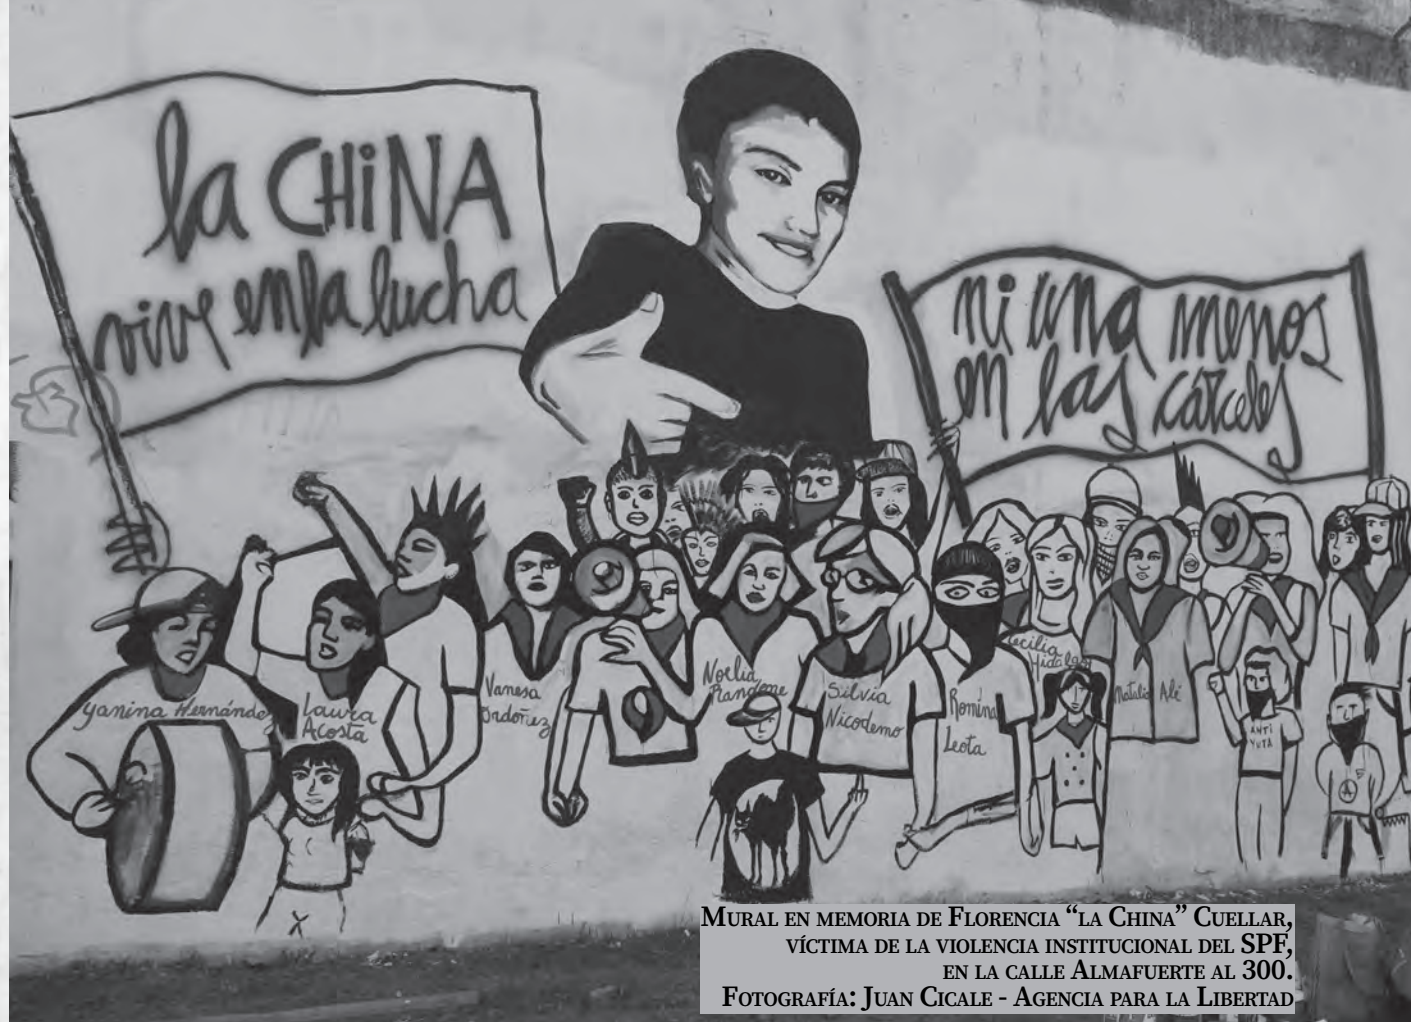 la CHiNA
vive en la lucha
ni una menos
en las
cárceles
Yanina Hernández
Laura
Acosta
Vanesa
Ordoñez
Noelia
Randone
Silvia
Nicodemo
Romina
Leota
Cecilia
Hidalgo
Natalia Alé
ANTI
YUTA
A
MURAL EN MEMORIA DE FLORENCIA “LA CHINA” CUELLAR,
VÍCTIMA DE LA VIOLENCIA INSTITUCIONAL DEL SPF,
EN LA CALLE ALMAFUERTE AL 300.
FOTOGRAFÍA: JUAN CICALE - AGENCIA PARA LA LIBERTAD